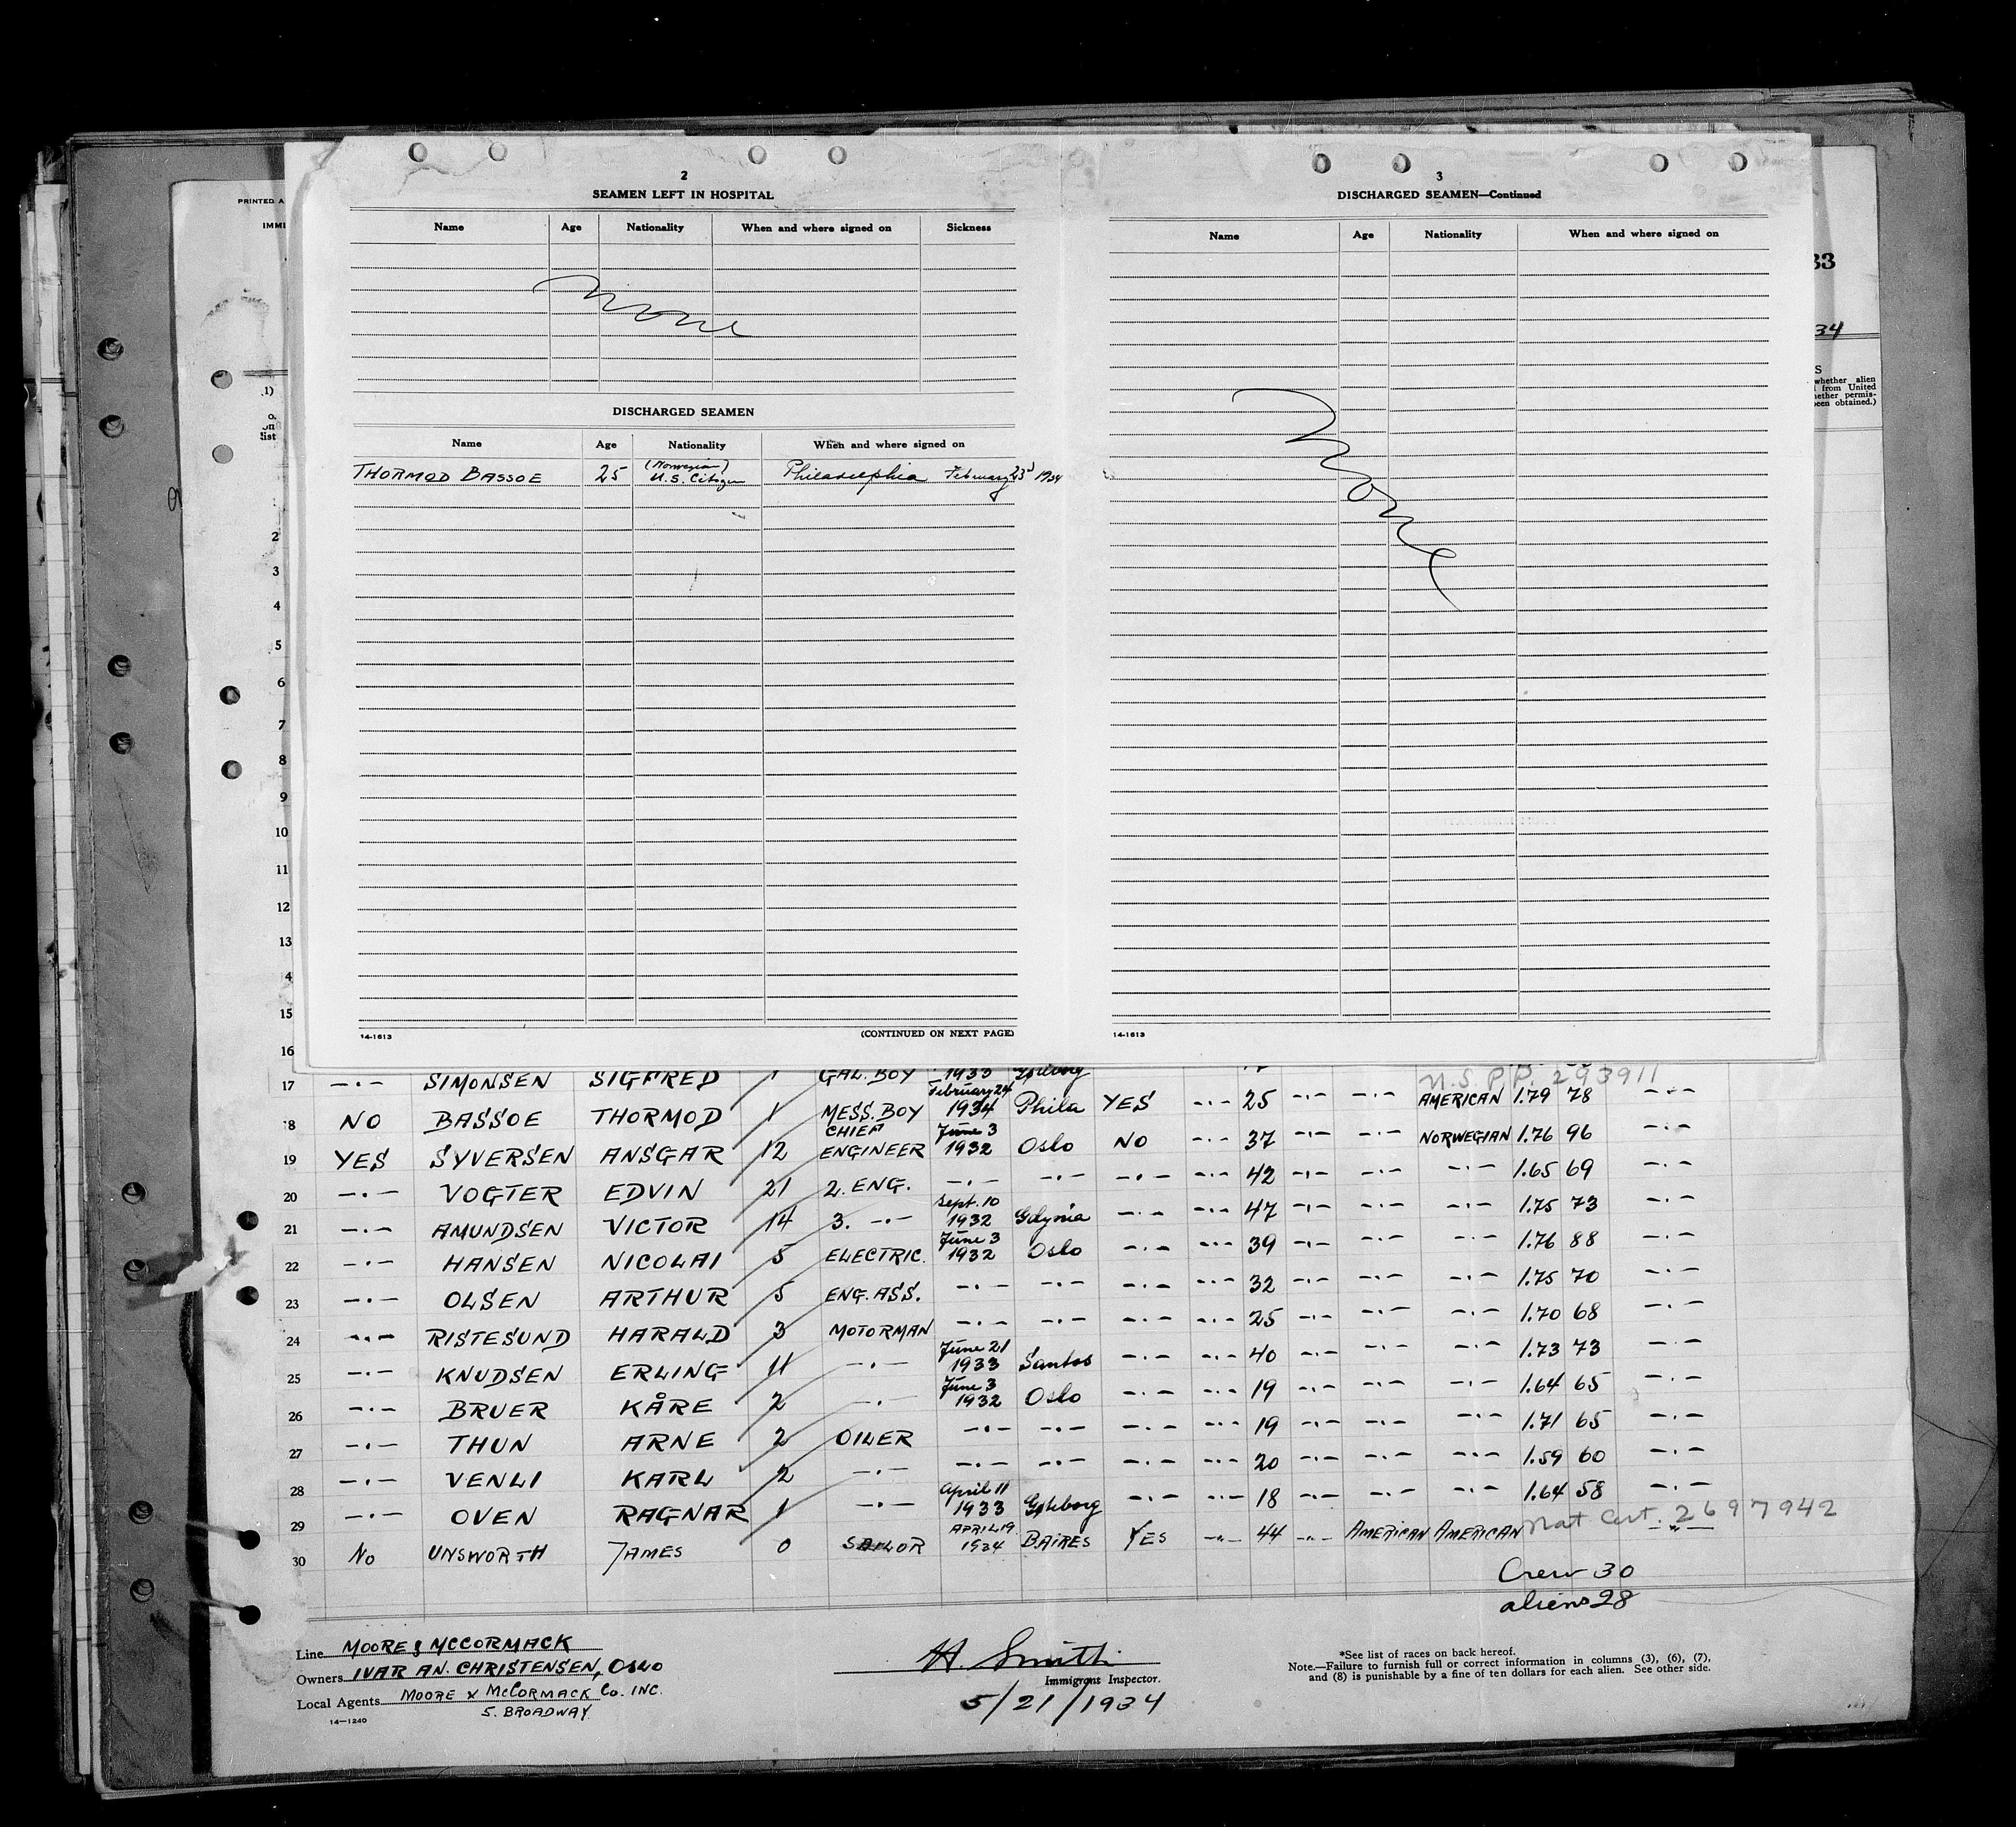 2
SEAMEN LEFT IN HOSPITAL
Name Age Nationality When and where signed on Sickness
None
DISCHARGED SEAMEN
Name Age Nationality When and where signed on
THORMOD BASSOE 25 (Norwegian) U.S. Citizen Philadelphia February 23d 1934
14-1613 (CONTINUED ON NEXT PAGE)
3
DISCHARGED SEAMEN—Continued
Name Age Nationality When and where signed on
None
14-1613
PRINTED A
IMMI
1)
o.
list
33
34
S
whether alien
from United
whether permis-
been obtained.)
2
3
4
5
6
7
8
9
10
11
12
13
4
15
16
U.S. P.P. 293911
17 —·— SIMONSEN SIGFRED 1 GAL. BOY 1933
8 NO BASSOE THORMOD 1 MESS. BOY February 24 1934 Phila YES —·— 25 —·— —·— AMERICAN 1.79 78 —·—
19 YES SYVERSEN ANSGAR 12 CHIEF ENGINEER June 3 1932 Oslo NO —·— 37 —·— —·— NORWEGIAN 1.76 96 —·—
20 —·— VOGTER EDVIN 21 2. ENG. —·— —·— —·— —·— 42 —·— —·— —·— 1.65 69 —·—
21 —·— AMUNDSEN VICTOR 14 3. —·— Sept. 10 1932 Gdynia —·— —·— 47 —·— —·— —·— 1.75 73 —·—
22 —·— HANSEN NICOLAI 5 ELECTRIC. June 3 1932 Oslo —·— —·— 39 —·— —·— —·— 1.76 88 —·—
23 —·— OLSEN ARTHUR 5 ENG. ASS. —·— —·— —·— —·— 32 —·— —·— —·— 1.75 70 —·—
24 —·— RISTESUND HARALD 3 MOTORMAN —·— —·— —·— —·— 25 —·— —·— —·— 1.70 68 —·—
25 —·— KNUDSEN ERLING 11 —·— June 21 1933 Santos —·— —·— 40 —·— —·— —·— 1.73 73 —·—
26 —·— BRUER KÅRE 2 —·— June 3 1932 Oslo —·— —·— 19 —·— —·— —·— 1.64 65 —·—
27 —·— THUN ARNE 2 OILER —·— —·— —·— —·— 19 —·— —·— —·— 1.71 65 —·—
28 —·— VENLI KARL 2 —·— —·— —·— —·— —·— 20 —·— —·— —·— 1.59 60 —·—
29 —·— OVEN RAGNAR 1 —·— April 11 1933 Gothborg —·— —·— 18 —·— —·— —·— 1.64 58 —·—
30 No UNSWORTH JAMES 0 SAILOR APRIL 19 1934 B.AIRES YES —"— 44 —"— AMERICAN AMERICAN Nat Cert. 2697942 —"—
Crew 30
aliens 28
Line MOORE & MCCORMACK
Owners IVAR AN. CHRISTENSEN, OSLO
Local Agents MOORE & McCORMACK Co. INC.
5. BROADWAY.
14—1240
H. Smith
Immigrant Inspector.
5/21/1934
*See list of races on back hereof.
Note.—Failure to furnish full or correct information in columns (3), (6), (7),
and (8) is punishable by a fine of ten dollars for each alien. See other side.